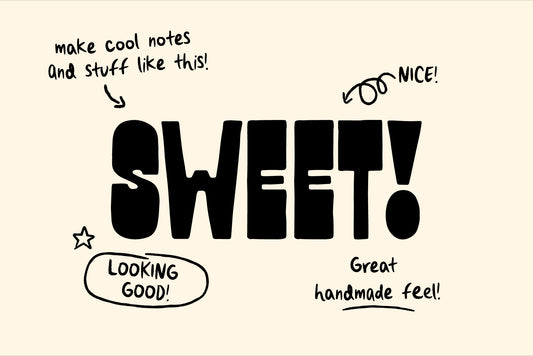 make cool notes
and stuff like this!
NICE!
SWEET!
LOOKING
GOOD!
Great
handmade feel!